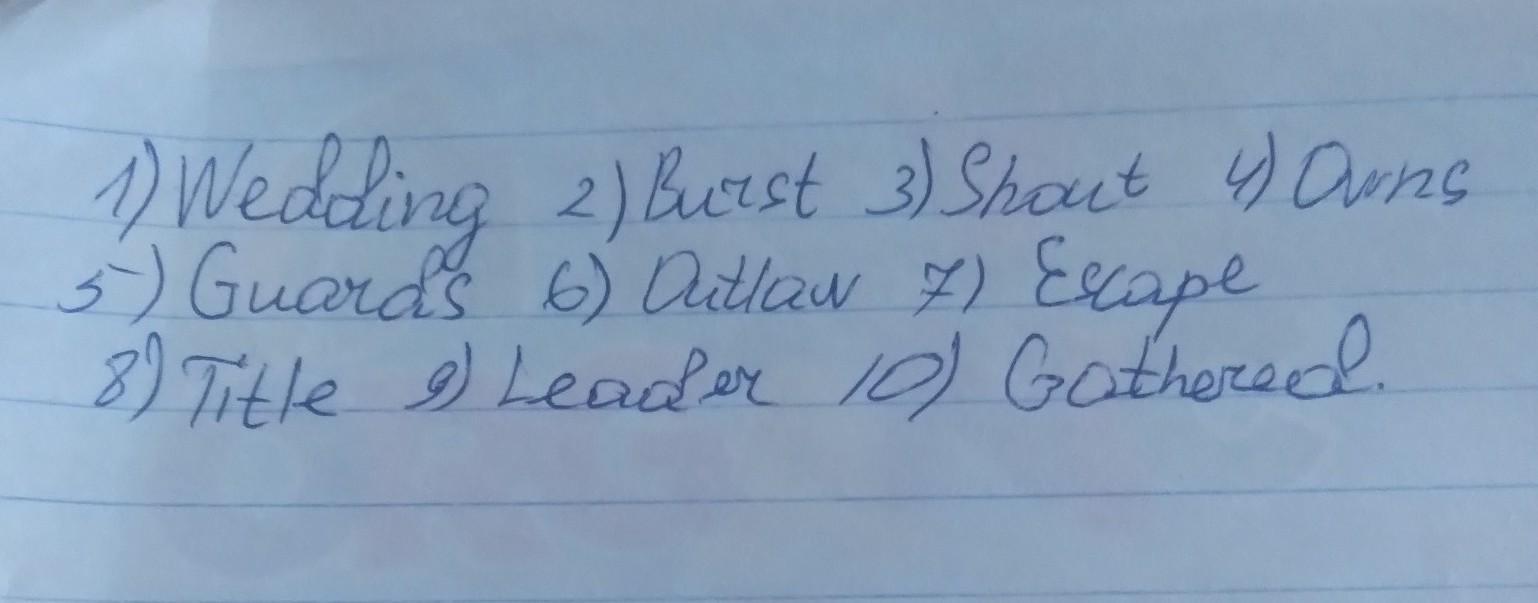 1) Wedding 2) Burst 3) Shout 4) Owns
5) Guards 6) Outlaw 7) Escape
8) Title 9) Leader 10) Gathered.